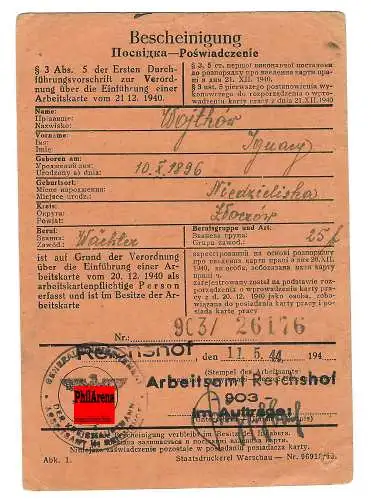 Bescheinigung
Посвідка—Poświadczenie
§ 3 Abs. 5 der Ersten Durch-
führungsvorschrift zur Verord-
nung über die Einführung einer
Arbeitskarte vom 21 12. 1940.
§ 3, 5 ст. першої виконавчої постанови
до розпорядку про введення карти пра-
ці в дня 21. XII. 1940.
§ 3 ust. 5 pierwszego postanowienia wy-
konawczego do rozporządzenia o wpro-
wadzeniu karty pracy z dnia 21.XII 1940
Name:
Прізвище:
Nazwisko:
Wojtków
Vorname:
Імя:
Imię:
Ignacy
Geboren am:
Уроджений дня:
Urodzony(a) dnia:
10.X.1896
Geburtsort:
Місце народження:
Miejsce urodz.:
Niedzieliska
Kreis:
Округа:
Powiat:
Złoczów
Beruf:
Звання:
Zawód.:
Wächler
Berufsgruppe und Art:
Званева група:
Grupa zawod.:
25 f
ist auf Grund der Verordnung
über die Einführung einer Ar-
beitskarte vom 20. 12 1940 als
arbeitskartenpflichtige Person
erfasst und ist im Besitze der Ar-
beitskarte
зареєстрований на основі розпорядку
про введення карти праці з дня 20.XII.
1940, як особа, зобовязана мати карту
праці, і посідає карту праці.
zarejestrowany został na podstawie rozpo-
rządzenia o wprowadzeniu karty pracy
z d. 20. 12 1940 jako osoba, zobo-
wiązana do posiadania karty pracy i po-
siada kartę pracy
Nr.: 903/ 26176
Reichshof, den 11. 5. 44 194
(Stempel des Arbeitsamts
Arbeitsamt Reichshof
903
Im Auftrage:
PhilArena
Bescheinigung verbleibt im Besitz des Inhabers.
Niniejsze zaświadczenie pozostaje w posiadaniu posiadacza karty.
Abk. 1.
Staatsdruckerei Warschau — Nr.